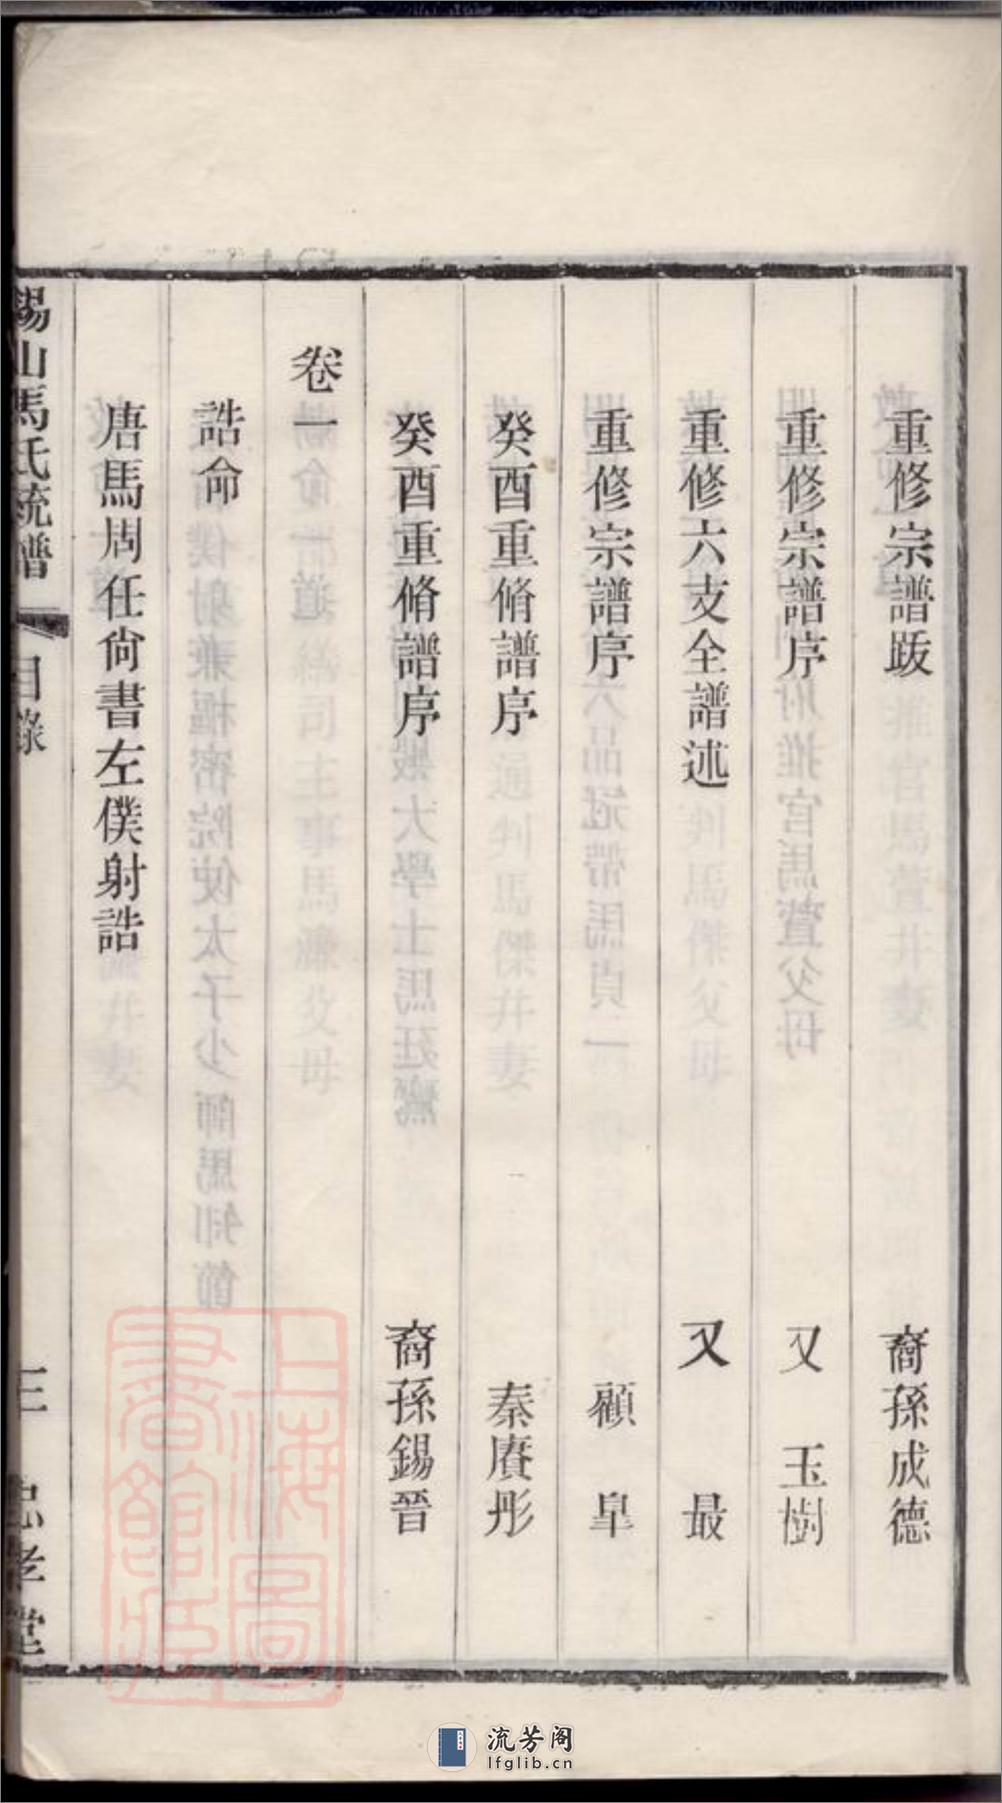 重修宗譜跋 裔孫成德
重修宗譜序 又 玉樹
重修六支全譜述 又 最
重修宗譜序 顧 皐
癸酉重脩譜序 秦賡彤
癸酉重脩譜序 裔孫錫晉
卷一
誥命
唐馬周任尙書左僕射誥
錫山馬氏統譜 目錄 三 忠孝堂
上海圖書館藏
流芳阁
lfglib.cn